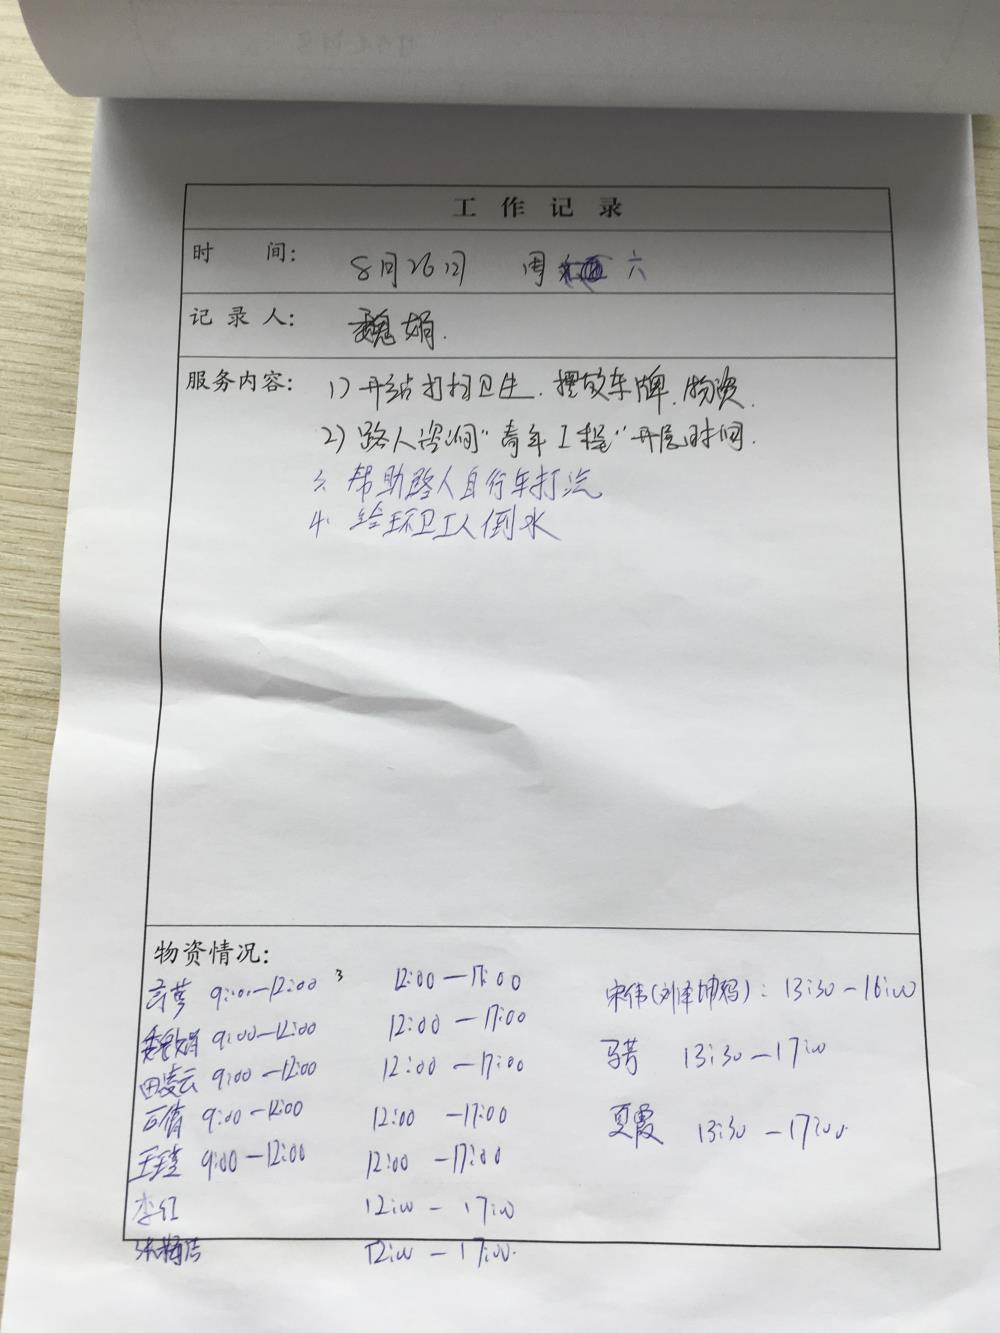 工作记录
时 间: 8月26日 周六
记录人: 魏娟.
服务内容: 1) 开站打扫卫生. 摆放车牌. 物资.
2) 路人咨询"青年工程"开展时间.
3、帮助路人自行车打汽
4、给环卫工人倒水
物资情况:
9:00—12:00 3 12:00—17:00 宋伟(刘泽坤妈): 13:30—16:00
魏娟 9:00—12:00 12:00—17:00 马芳 13:30—17:00
田凌云 9:00—12:00 12:00—17:00
石倩 9:00—12:00 12:00—17:00 夏霞 13:30—17:00.
9:00—12:00 12:00—17:00
李红 12:00—17:00
12:00—17:00.